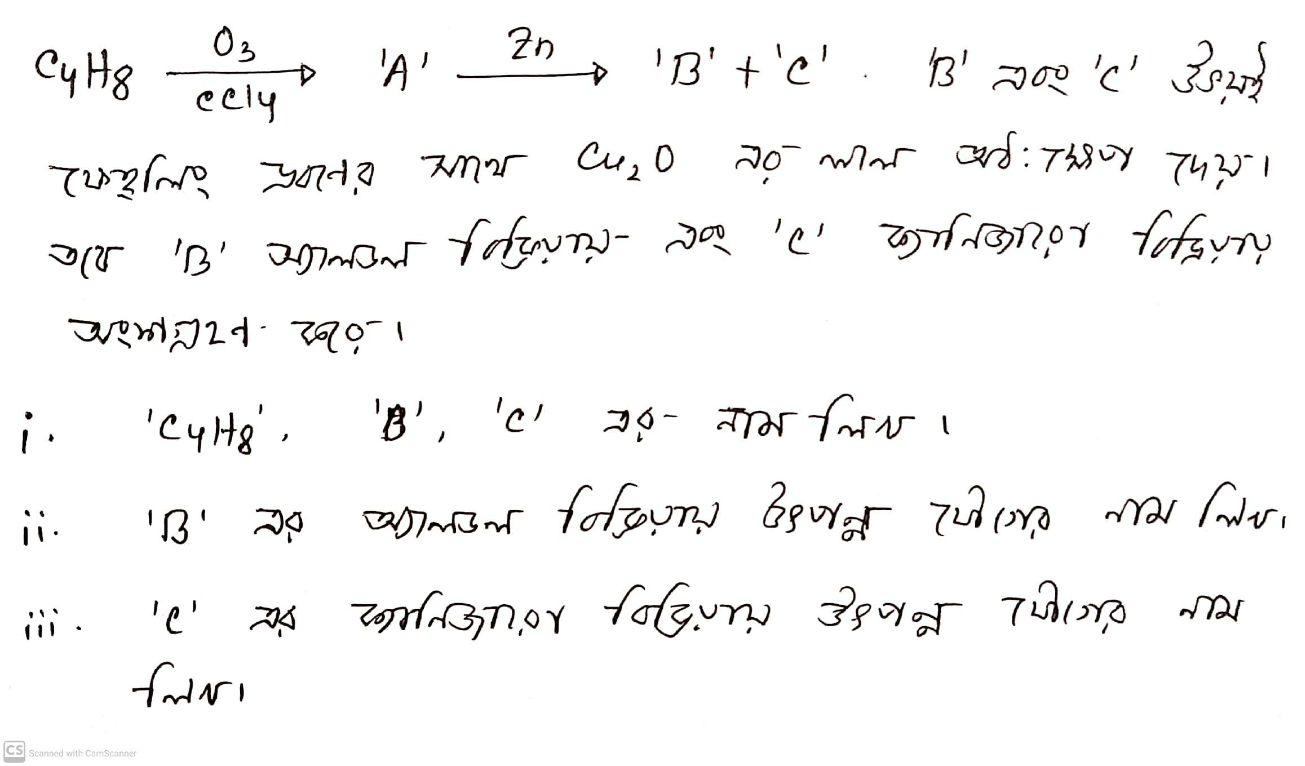 C4H8 O3 CCl4 'A' Zn 'B' + 'C'. 'B' এবং 'C' উভয়ই
ফেহলিং দ্রবণের সাথে Cu2O এর লাল অধ:ক্ষেপ দেয়।
তবে 'B' অ্যালডল বিক্রিয়ায় এবং 'C' ক্যানিজারো বিক্রিয়ায়
অংশগ্রহণ করে।
i. 'C4H8', 'B', 'C' এর নাম লিখ।
ii. 'B' এর অ্যালডল বিক্রিয়ায় উৎপন্ন যৌগের নাম লিখ।
iii. 'C' এর ক্যানিজারো বিক্রিয়ায় উৎপন্ন যৌগের নাম
লিখ।
CS Scanned with CamScanner